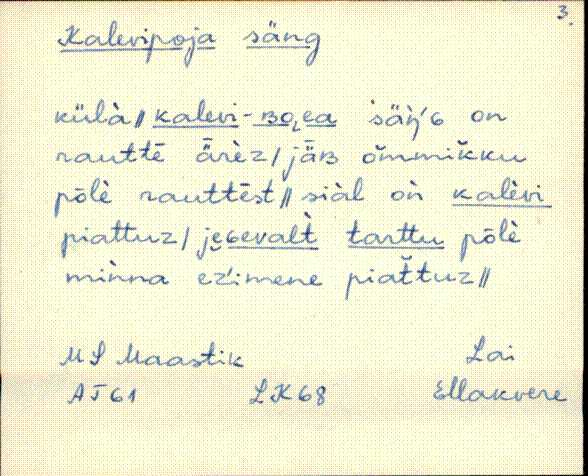 3.
Kalevipoja säng
külà // kalevi-ʙo̭ea säǹ'ɢ on
rauttē ārèz / jāʙ ŏmmĭkku
pōlè rauttēst // siàl oǹ kalèvi
piattuz / jeɢevalt̀ tarttu pōlè
miǹna ez'imene piat̆tuz //
MS Maastik Lai
AT 61 LK 68 Ellakvere